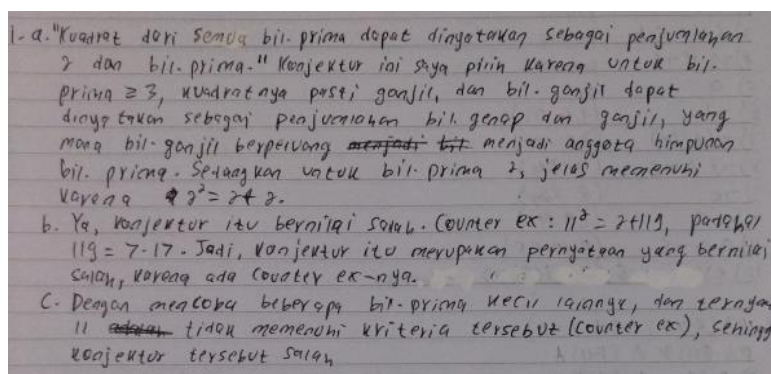 1. a. "Kuadrat dari semua bil. prima dapat dinyatakan sebagai penjumlahan
2 dan bil. prima." Konjektur ini saya pilih karena untuk bil.
prima ≥ 3, kuadratnya pasti ganjil, dan bil. ganjil dapat
dinyatakan sebagai penjumlahan bil. genap dan ganjil, yang
mana bil. ganjil berpeluang menjadi bil menjadi anggota himpunan
bil. prima. Sedangkan untuk bil. prima 2, jelas memenuhi
karena 2² = 2+ 2.
b. Ya, konjektur itu bernilai salah. Counter ex : 11² = 2+119, padahal
119 = 7·17. Jadi, konjektur itu merupakan pernyataan yang bernilai
salah, karena ada counter ex-nya.
C. Dengan mencoba beberapa bil. prima kecil lainnya, dan ternyata
11 adalah tidak memenuhi kriteria tersebut (counter ex), sehingg
konjektur tersebut salah